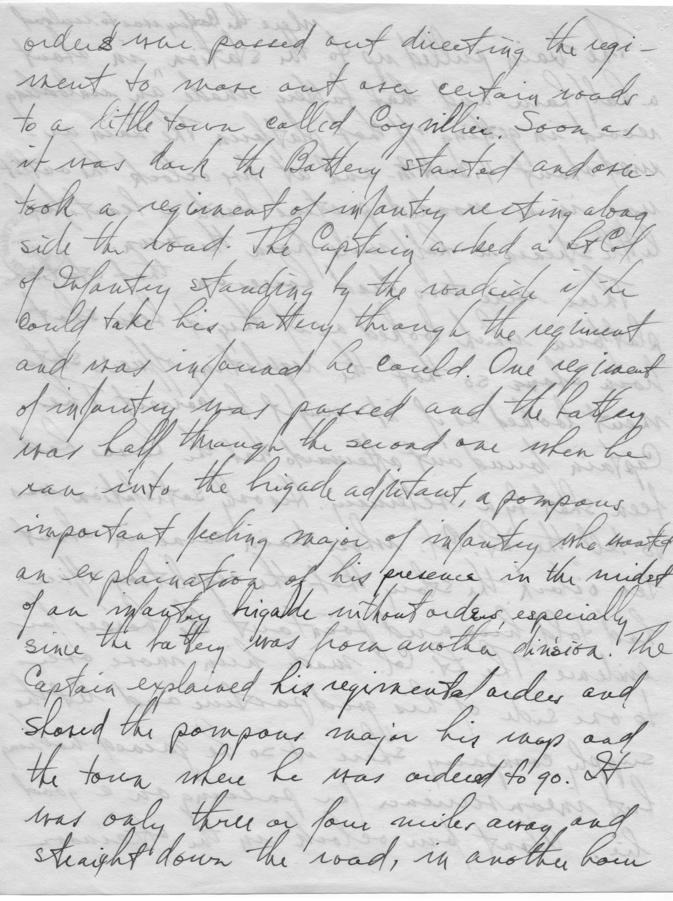 orders were passed out directing the regi-
ment to move out over certain roads
to a little town called Coyvillier. Soon as
it was dark the Battery started and over-
took a regiment of infantry resting along
side the road. The Captain asked a Lt Col.
of Infantry standing by the roadside if he
could take his battery through the regiment
and was informed he could. One regiment
of infantry was passed and the battery
was half through the second one when he
ran into the brigade adjutant, a pompous
important feeling major of infantry who wanted
an explaination of his presence in the midst
of an infantry brigade without orders, especially
since the battery was from another division. The
Captain explained his regimental orders and
showed the pompous major his map and
the town where he was ordered to go. It
was only three or four miles away and
straight down the road, in another hour